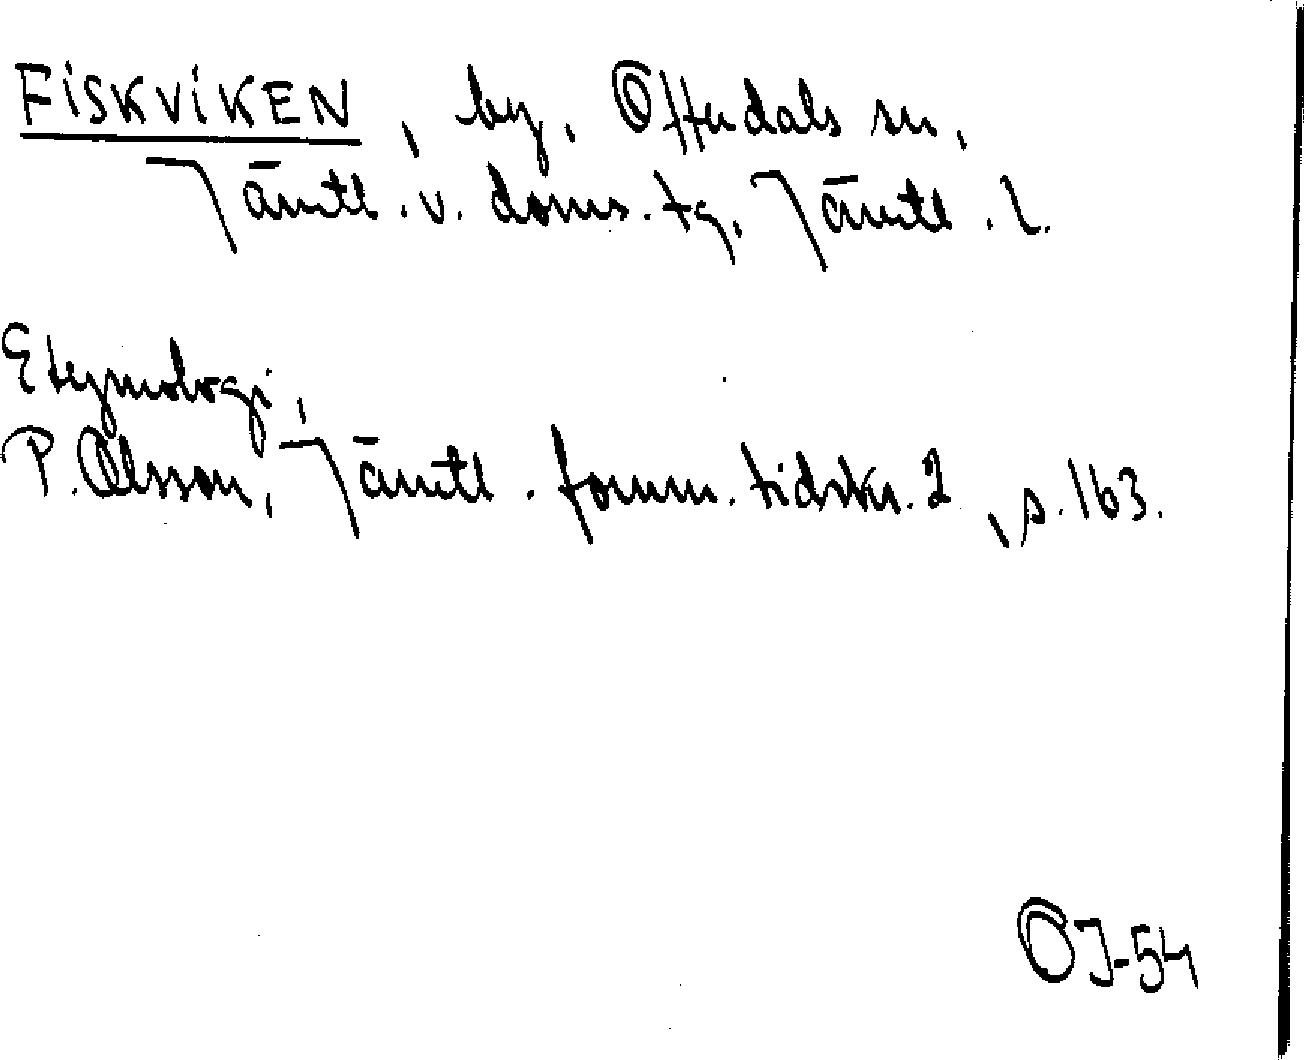 FISKVIKEN, by, Offerdals sn,
Jämtl. v. doms. tg, Jämtl. l.
Etymologi,
P. Olsson, Jämtl. fornm. tidskr. 2, s. 163.
OJ-54